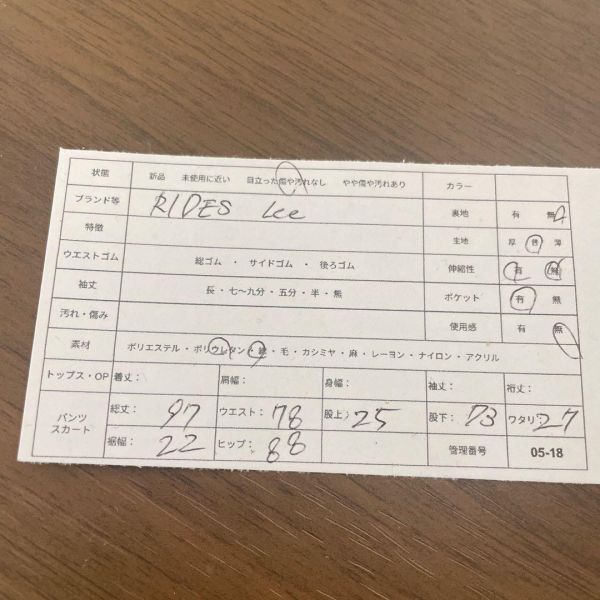 状態 新品 未使用に近い 目立った傷や汚れなし やや傷や汚れあり カラー
ブランド等 RIDES Lee 裏地 有 無
特徴 生地 厚 普 薄
ウエストゴム 総ゴム ・ サイドゴム ・ 後ろゴム 伸縮性 有 無
袖丈 長 ・ 七〜九分 ・ 五分 ・ 半 ・ 無 ポケット 有 無
汚れ・傷み 使用感 有 無
素材 ポリエステル ・ ポリウレタン ・ 綿 ・ 毛 ・ カシミヤ ・ 麻 ・ レーヨン ・ ナイロン ・ アクリル
トップス・OP 着丈: 肩幅: 身幅: 袖丈: 裄丈:
パンツ スカート 総丈: 97 ウエスト: 78 股上: 25 股下: 73 ワタリ: 27
裾幅: 22 ヒップ: 88 管理番号 05-18